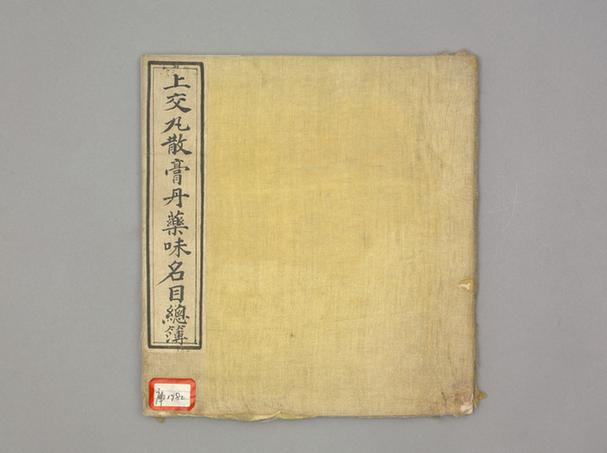 上交丸散膏丹藥味名目總簿
1782